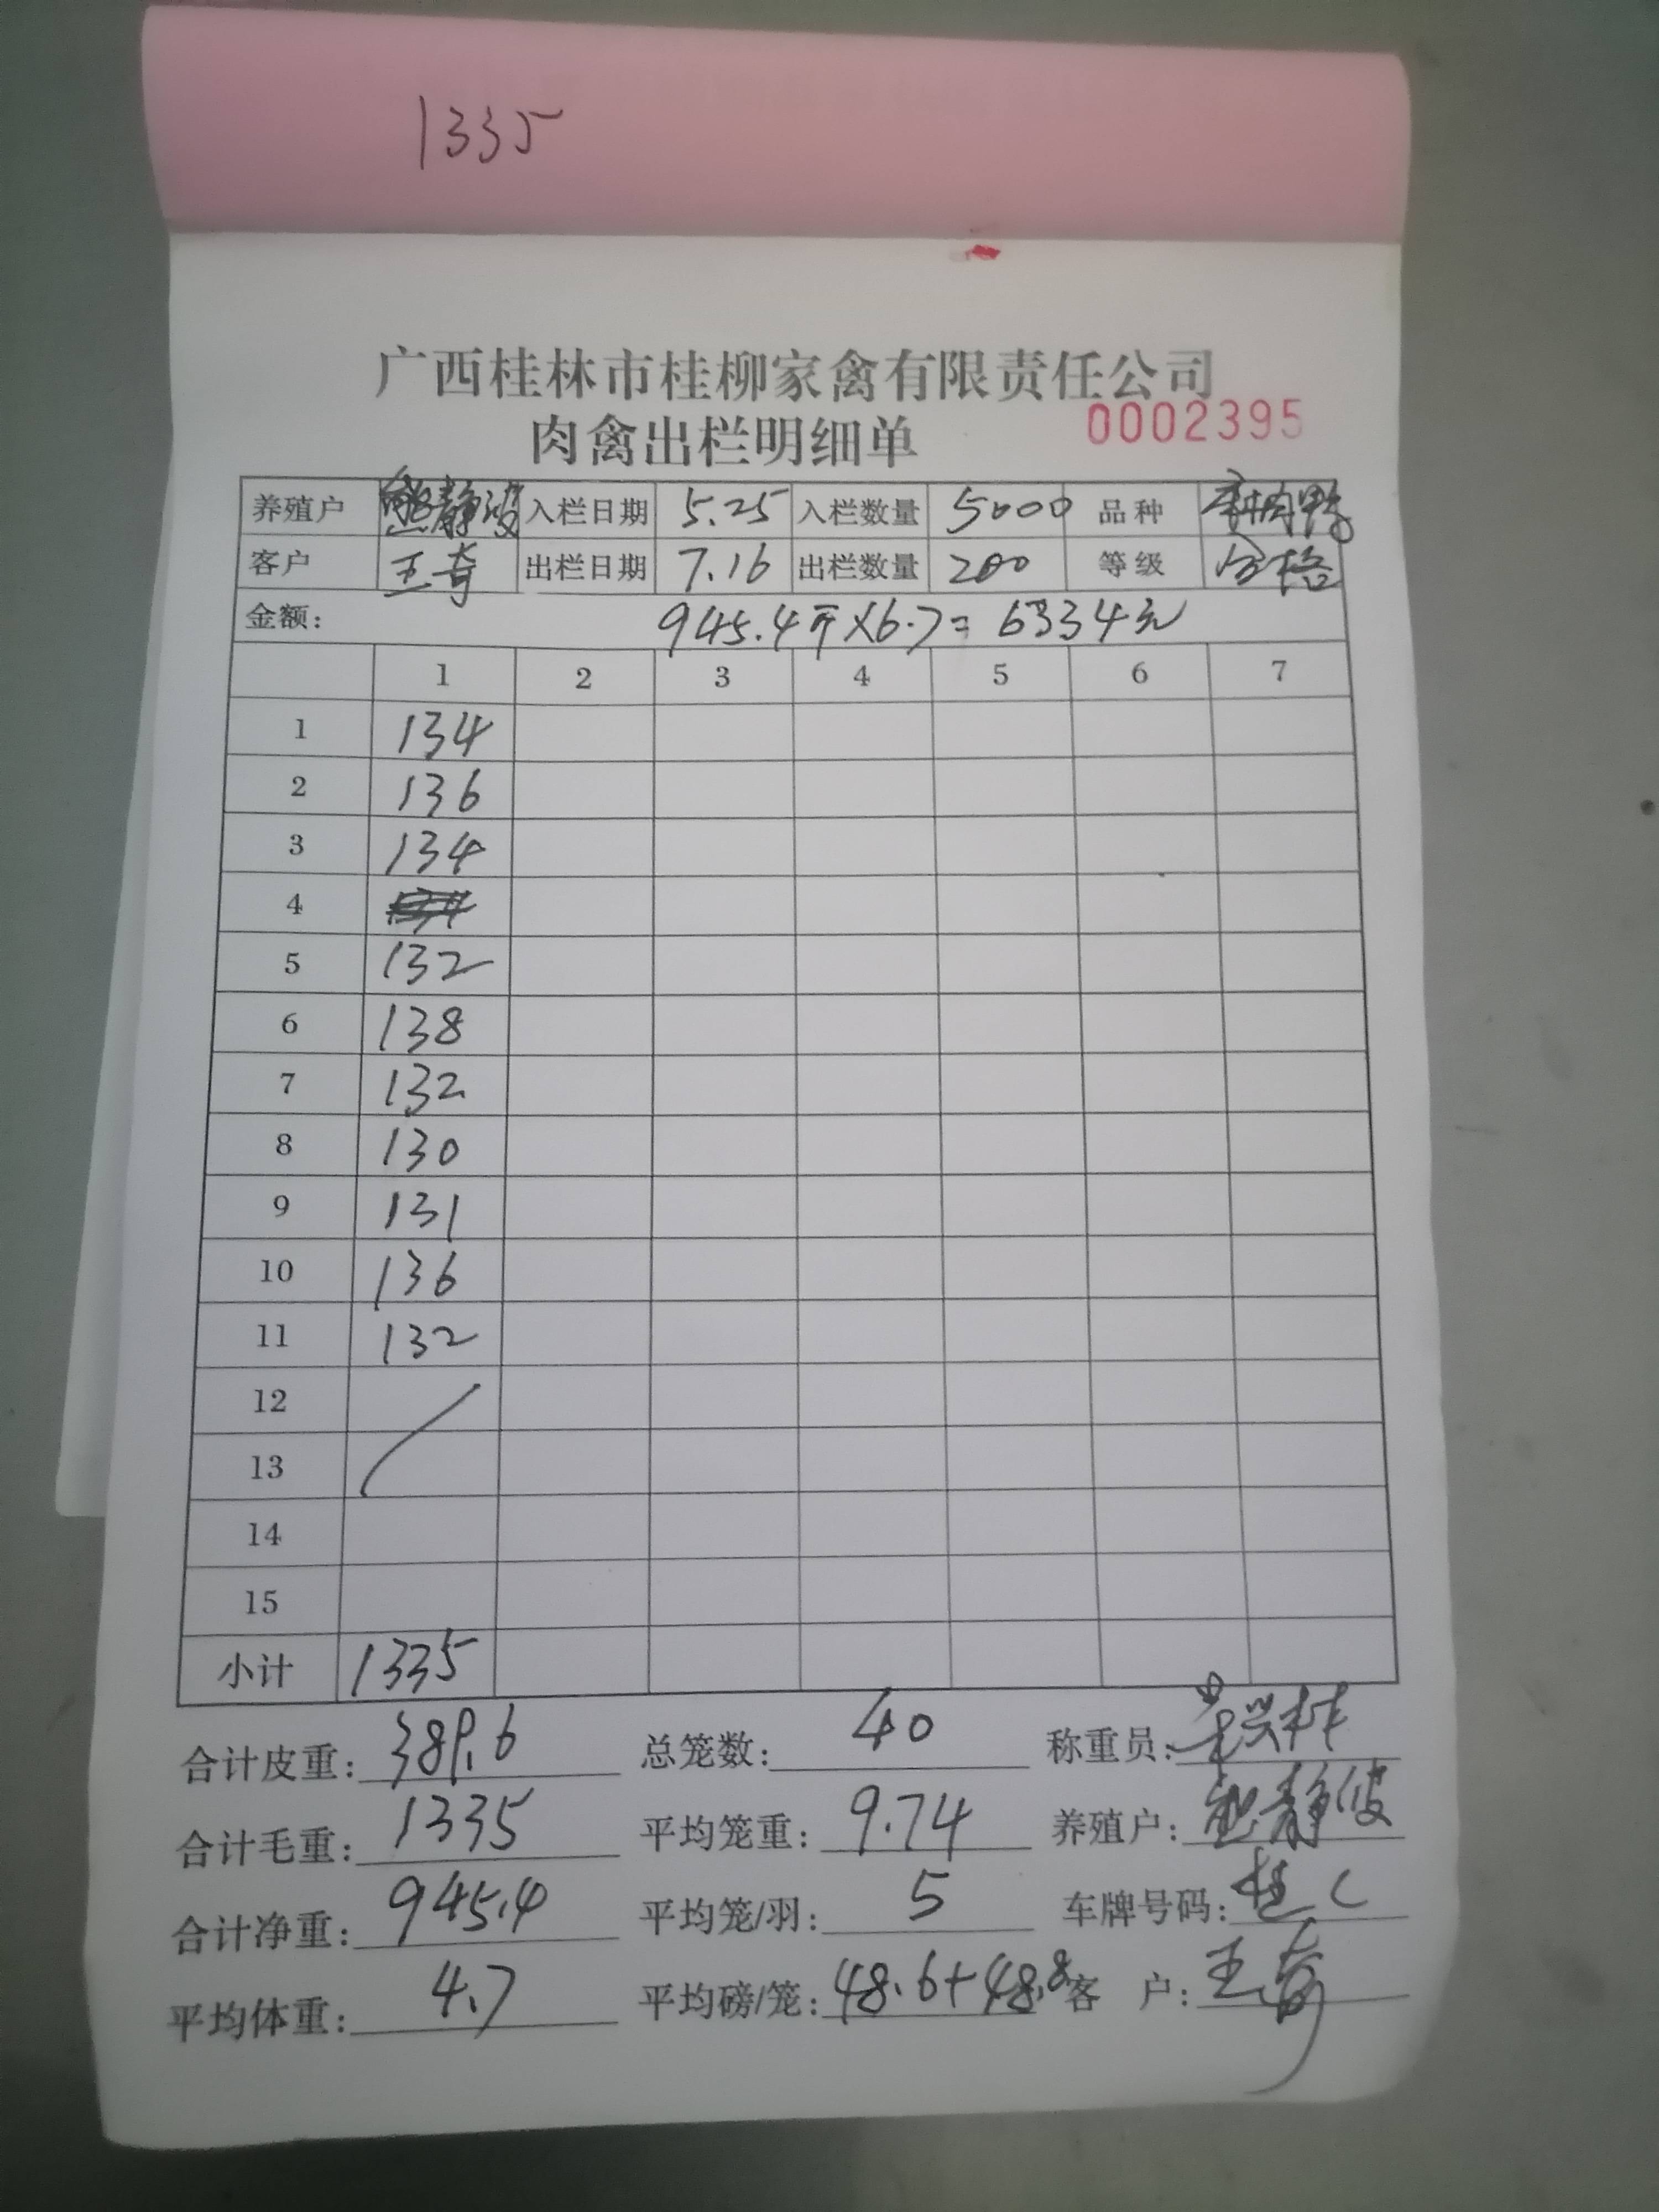 1335
广西桂林市桂柳家禽有限责任公司
肉禽出栏明细单
0002395
养殖户 熊静波 入栏日期 5.25 入栏数量 5000 品种 肉鸭
客户 王奇 出栏日期 7.16 出栏数量 200 等级 合格
金额: 945.4斤×6.7=6334元
1 2 3 4 5 6 7
1 134
2 136
3 134
4
5 132
6 138
7 132
8 130
9 131
10 136
11 132
12
13
14
15
小计 1335
合计皮重: 389.6 总笼数: 40 称重员:
合计毛重: 1335 平均笼重: 9.74 养殖户: 熊静波
合计净重: 945.4 平均笼/羽: 5 车牌号码: 桂C
平均体重: 4.7 平均磅/笼: 48.6+48.8 客 户: 王奇